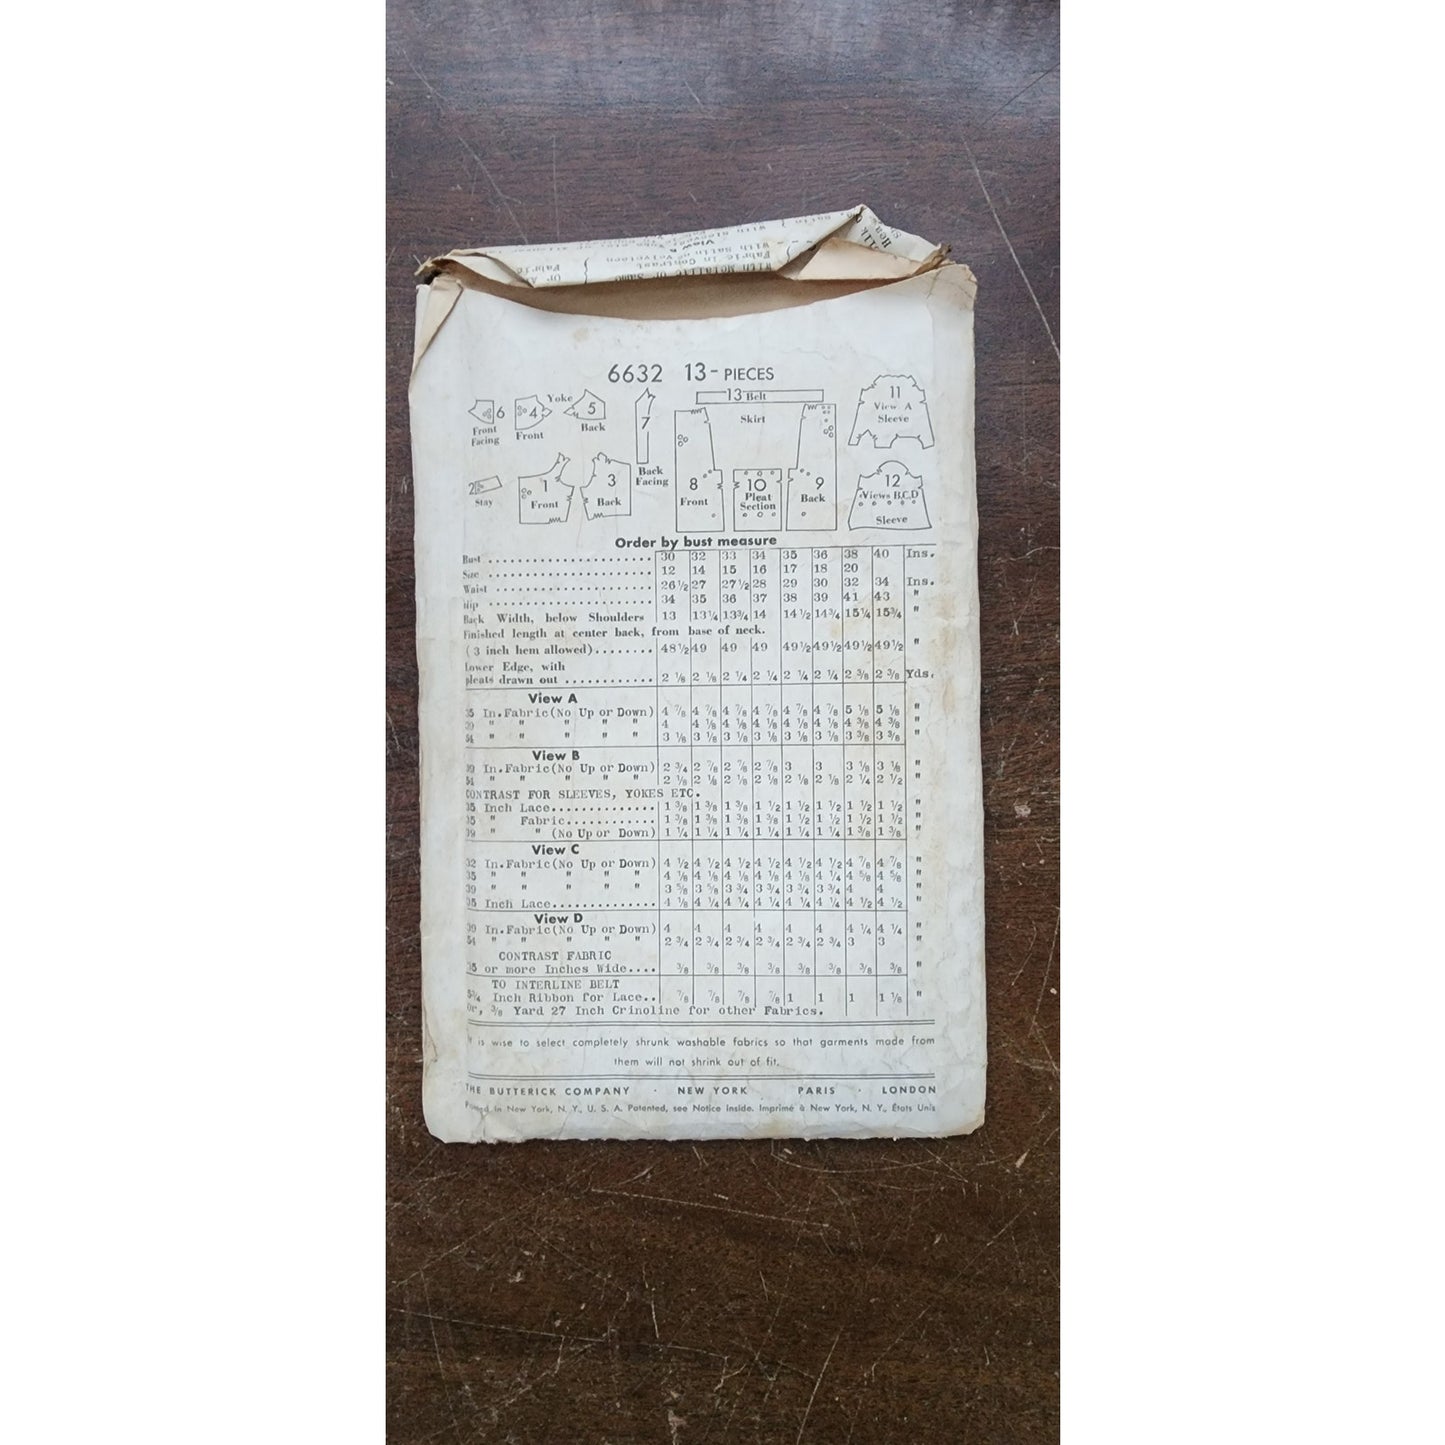 With Metallic or Same
Fabric in Contrast
With Satin or Velveteen
View B
Or A
Fabric
6632 13-PIECES
6 Front Facing
4 Front
Yoke
5 Back
7 Back Facing
13 Belt
Skirt
11 View A Sleeve
2 Stay
1 Front
3 Back
8 Front
10 Pleat Section
9 Back
12 Views B.C.D Sleeve
Order by bust measure
Bust 30 32 33 34 35 36 38 40 Ins.
Size 12 14 15 16 17 18 20
Waist 26½ 27 27½ 28 29 30 32 34 Ins.
Hip 34 35 36 37 38 39 41 43 "
Back Width, below Shoulders 13 13¼ 13¾ 14 14½ 14¾ 15¼ 15¾ "
Finished length at center back, from base of neck.
(3 inch hem allowed)........ 48½ 49 49 49 49½ 49½ 49½ 49½ "
Lower Edge, with
pleats drawn out ............ 2 ⅛ 2 ⅛ 2 ¼ 2 ¼ 2 ¼ 2 ¼ 2 ⅜ 2 ⅜ Yds.
View A
35 In.Fabric(No Up or Down) 4 ⅞ 4 ⅞ 4 ⅞ 4 ⅞ 4 ⅞ 4 ⅞ 5 ⅛ 5 ⅛ "
39 " " " " " 4 4 ⅛ 4 ⅛ 4 ⅛ 4 ⅛ 4 ⅛ 4 ⅜ 4 ⅜ "
54 " " " " " 3 ⅛ 3 ⅛ 3 ⅛ 3 ⅛ 3 ⅛ 3 ⅛ 3 ⅜ 3 ⅜ "
View B
39 In.Fabric(No Up or Down) 2 ¾ 2 ⅞ 2 ⅞ 2 ⅞ 3 3 3 ⅛ 3 ⅛ "
54 " " " " " 2 ⅛ 2 ⅛ 2 ⅛ 2 ⅛ 2 ⅛ 2 ⅛ 2 ¼ 2 ½ "
CONTRAST FOR SLEEVES, YOKES ETC.
35 Inch Lace............. 1 ⅜ 1 ⅜ 1 ⅜ 1 ½ 1 ½ 1 ½ 1 ½ 1 ½ "
35 " Fabric........... 1 ⅜ 1 ⅜ 1 ⅜ 1 ⅜ 1 ½ 1 ½ 1 ½ 1 ½ "
39 " " (No Up or Down) 1 ¼ 1 ¼ 1 ¼ 1 ¼ 1 ¼ 1 ¼ 1 ⅜ 1 ⅜ "
View C
32 In.Fabric(No Up or Down) 4 ½ 4 ½ 4 ½ 4 ½ 4 ½ 4 ½ 4 ⅞ 4 ⅞ "
35 " " " " " 4 ⅛ 4 ⅛ 4 ⅛ 4 ⅛ 4 ⅛ 4 ¼ 4 ⅝ 4 ⅝ "
39 " " " " " 3 ⅝ 3 ⅝ 3 ¾ 3 ¾ 3 ¾ 3 ¾ 4 4 "
35 Inch Lace............. 4 ⅛ 4 ¼ 4 ¼ 4 ¼ 4 ¼ 4 ¼ 4 ½ 4 ½ "
View D
39 In.Fabric(No Up or Down) 4 4 4 4 4 4 4 ¼ 4 ¼ "
54 " " " " " 2 ¾ 2 ¾ 2 ¾ 2 ¾ 2 ¾ 2 ¾ 3 3 "
CONTRAST FABRIC
35 or more Inches Wide.... ⅜ ⅜ ⅜ ⅜ ⅜ ⅜ ⅜ ⅜ "
TO INTERLINE BELT
Inch Ribbon for Lace.. ⅞ ⅞ ⅞ ⅞ 1 1 1 1 ⅛ "
or, ⅜ Yard 27 Inch Crinoline for other Fabrics.
It is wise to select completely shrunk washable fabrics so that garments made from
them will not shrink out of fit.
THE BUTTERICK COMPANY · NEW YORK PARIS · LONDON
Printed in New York, N. Y., U. S. A. Patented, see Notice Inside. Imprimé à New York, N. Y., États Unis